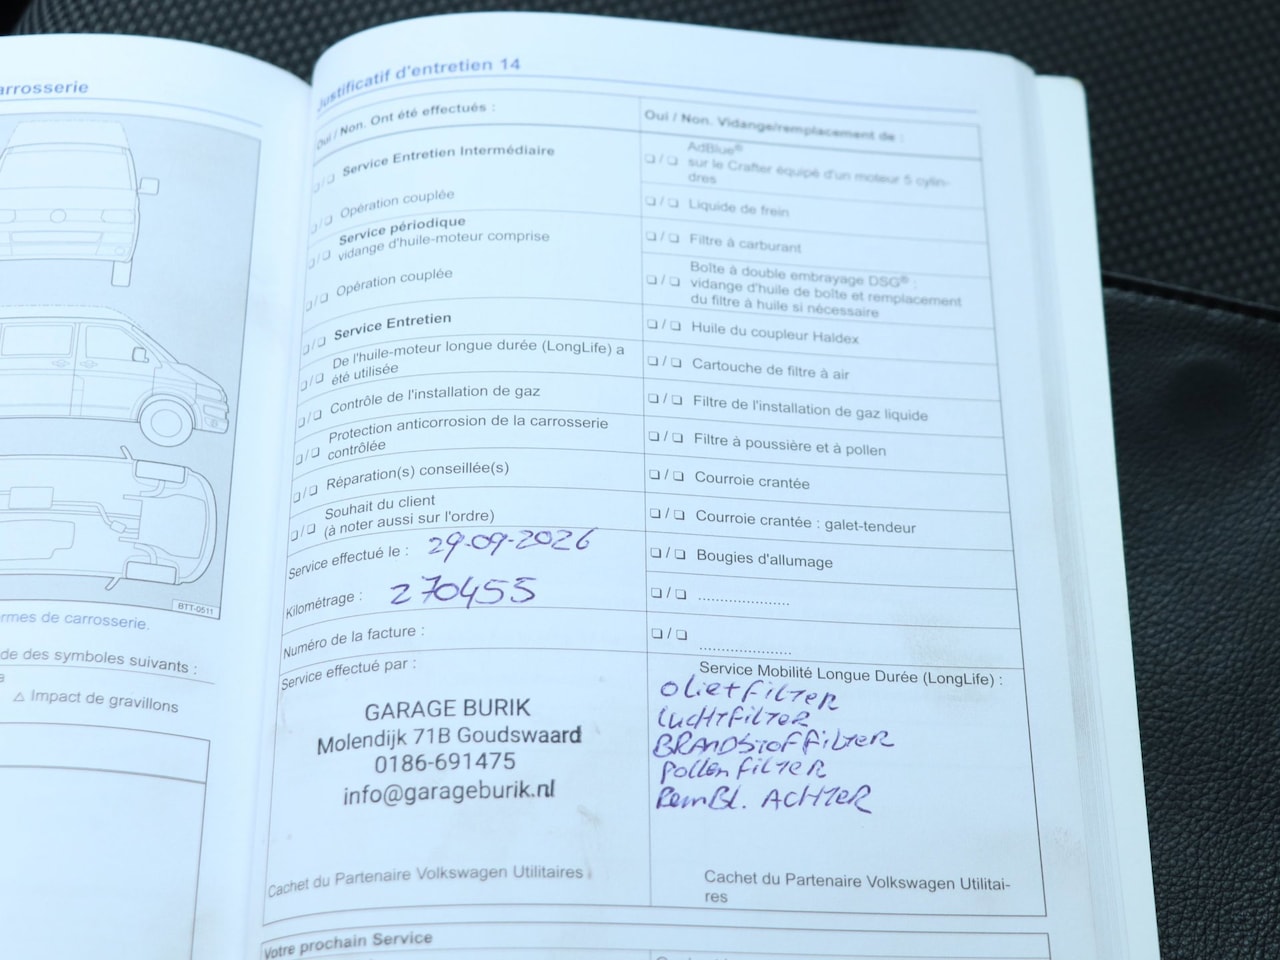 arrosserie
BTT-0511
rmes de carrosserie.
de des symboles suivants :
a
⚠ Impact de gravillons
Justificatif d'entretien 14
Oui / Non. Ont été effectués :
❏ / ❏ Service Entretien Intermédiaire
❏ / ❏ Opération couplée
❏ / ❏ Service périodique
vidange d'huile-moteur comprise
❏ / ❏ Opération couplée
❏ / ❏ Service Entretien
❏ / ❏ De l'huile-moteur longue durée (LongLife) a
été utilisée
❏ / ❏ Contrôle de l'installation de gaz
❏ / ❏ Protection anticorrosion de la carrosserie
contrôlée
❏ / ❏ Réparation(s) conseillée(s)
❏ / ❏ Souhait du client
(à noter aussi sur l'ordre)
Service effectué le : 29-09-2026
Kilométrage : 270455
Numéro de la facture :
Service effectué par :
GARAGE BURIK
Molendijk 71B Goudswaard
0186-691475
info@garageburik.nl
Cachet du Partenaire Volkswagen Utilitaires
Oui / Non. Vidange/remplacement de :
AdBlue®
❏ / ❏ sur le Crafter équipé d'un moteur 5 cylin-
dres
❏ / ❏ Liquide de frein
❏ / ❏ Filtre à carburant
Boîte à double embrayage DSG® :
❏ / ❏ vidange d'huile de boîte et remplacement
du filtre à huile si nécessaire
❏ / ❏ Huile du coupleur Haldex
❏ / ❏ Cartouche de filtre à air
❏ / ❏ Filtre de l'installation de gaz liquide
❏ / ❏ Filtre à poussière et à pollen
❏ / ❏ Courroie crantée
❏ / ❏ Courroie crantée : galet-tendeur
❏ / ❏ Bougies d'allumage
❏ / ❏ .....................
❏ / ❏ .....................
Service Mobilité Longue Durée (LongLife) :
OLIE+FILTER
LUCHTFILTER
BRANDSTOFFILTER
POLLENFILTER
REMBL. ACHTER
Cachet du Partenaire Volkswagen Utilitai-
res
Votre prochain Service